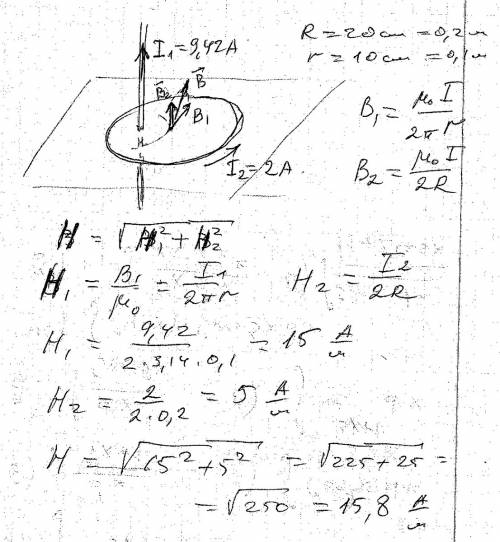 I₁ = 9,42 A
R = 20 см = 0,2 м
r = 10 см = 0,1 м
B⃗₂ B⃗
B₁
I₂ = 2 A
B₁ = μ₀ I / 2π r
B₂ = μ₀ I / 2R
H = √(H₁² + H₂²)
H₁ = B₁ / μ₀ = I₁ / 2π r H₂ = I₂ / 2R
H₁ = 9,42 / 2 · 3,14 · 0,1 = 15 А/м
H₂ = 2 / 2 · 0,2 = 5 А/м
H = √(15² + 5²) = √(225 + 25) =
= √250 = 15,8 А/м